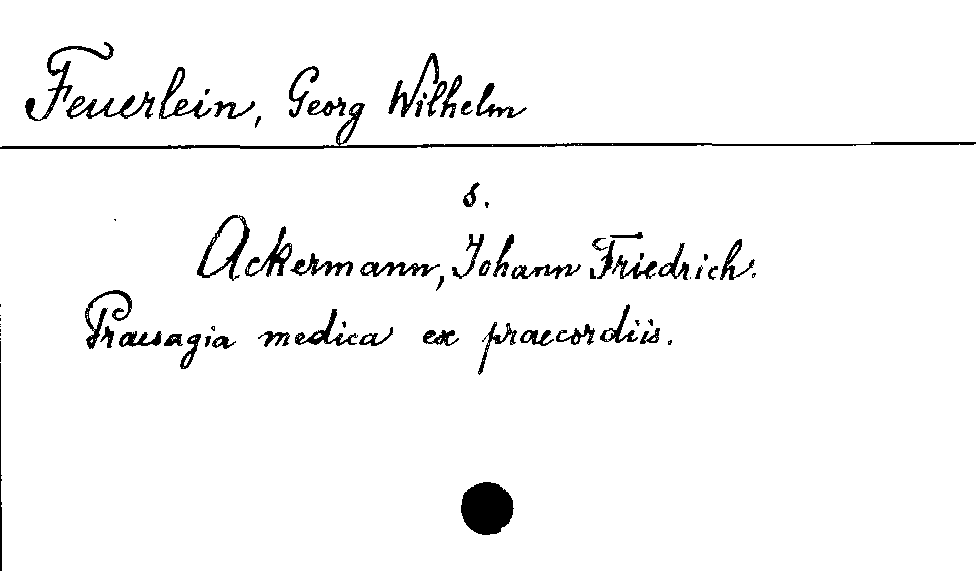 Feuerlein, Georg Wilhelm
s.
Ackermann, Johann Friedrich.
Praesagia medica ex praecordiis.